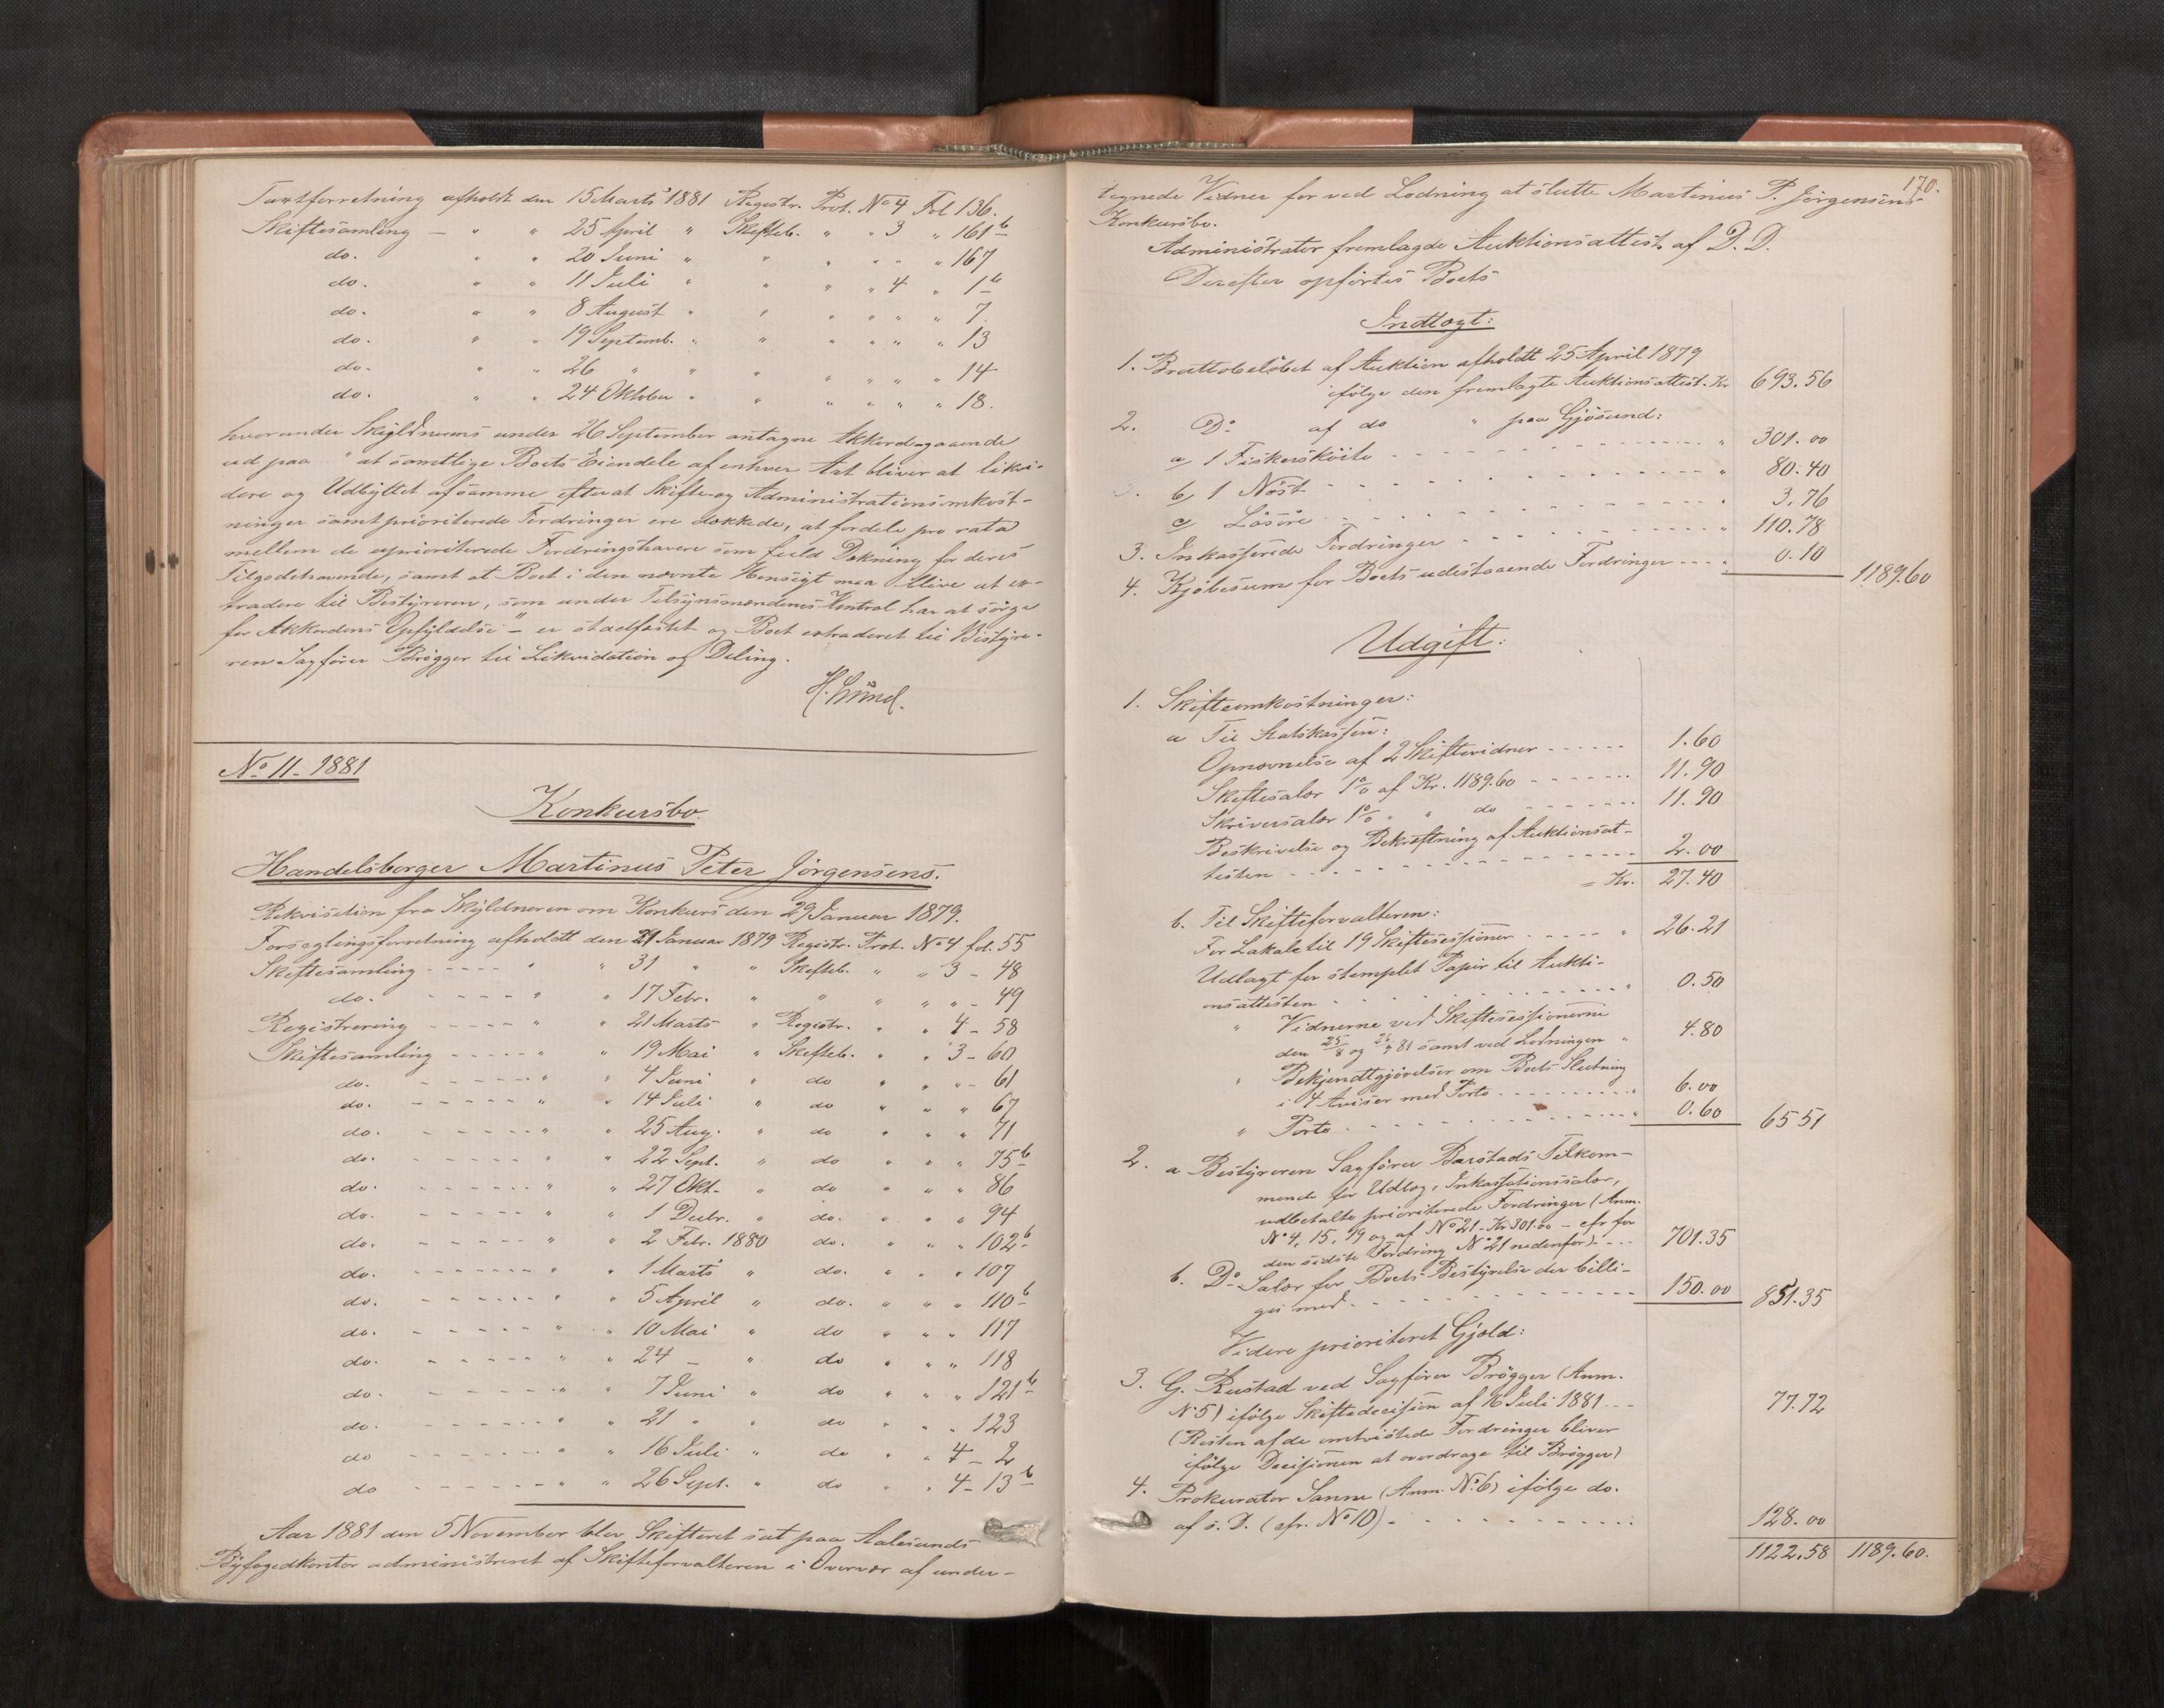 Taxtforretning afholdt den 15 Marts 1881 Registr. Prot. No 4 Fol 136.
Skiftesamling — " " 25 April " Skifteb. " " 3 " 161b
do. " " 20 Juni " " " " " " 167
do. " " 11 Juli " " " " 4 " 1b
do. " " 8 August " " " " " " 7
do. " " 19 Septemb. " " " " " " 13
do. " " 26 " " " " " " " 14
do. " " 24 Oktober " " " " " " 18.
hvorunder Skyldnerens under 26 September antagne Akkord – gaaende
ud paa " at samtlige Boets Eiendele af enhver Art bliver at likvi-
dere og Udbyttet af samme, efterat Skifte- og Administrationsomkost-
ninger samt prioriterede Fordringer ere dækkede, at fordele pro rata
mellem de uprioriterede Fordringshavere som fuld Dækning for deres
Tilgodehavende, samt at Boet i den nævnte Hensigt maa blive at ex-
tradere til Bestyreren, som under Tilsynsmændenes Kontrol har at sørge
for Akkordens Opfyldelse" – er stadfæstet og Boet extraderet til Bestyre-
ren Sagfører Brøgger til Likvidation og Deling.
No 11 - 1881
Konkursbo.
Handelsborger Martinus Peter Jörgensens.
Rekvisition fra Skyldneren om Konkurs den 29 Januar 1879.
Forseglingsforretning afholdt den 29 Januar 1879 Registr. Prot. No 4 fol. 55
Skiftesamling - - - - " " 31 " " Skifteb. " " 3 - 48
do. - - - - " " 17 Febr. " " " " " - 49
Registrering - - - - " " 21 Marts " Registr. " " 4 - 58
Skiftesamling - - - - " " 19 Mai " Skifteb. " " 3 - 60
do. - - - - " " 4 Juni " do " " " - 61
do. - - - - " " 14 Juli " do " " " 67
do. - - - - " " 25 Aug. " do " " " 71
do. - - - - " " 22 Sept. " do " " " 75b
do. - - - - " " 27 Okt. " do " " " 86
do. - - - - " " 1 Decbr. " do. " " " 94
do. - - - - " " 2 Febr. 1880 do. " " " 102b
do. - - - - " " 1 Marts " do. " " " 107
do. - - - - " " 5 April " do. " " " 110b
do. - - - - " " 10 Mai " do " " " 117
do. - - - - " " 24 – " do " " " 118
do. - - - - " " 7 Juni " do " " " 121b
do. - - - - " " 21 " " do " " " 123
do - - - - " " 16 Juli " do " " 4 - 2
do - - - - " " 26 Sept. " do " " 4 - 13b
Aar 1881 den 5 November blev Skifteret sat paa Aalesunds
Byfogedkontor administreret af Skifteforvalteren i Overvær af under-
170.
tegnede Vidner for ved Lodning at slutte Martinus P. Jörgensens
Konkursbo.
Administrator fremlagde Auktionsattest af D. D.
Derefter opførtes Boets
Indtægt:
1. Bruttobeløbet af Auktion afholdt 25 April 1879
ifølge den fremlagte Auktionsattest. Kr 693.56
2. Do af do " paa Gjøsund:
a) 1 Fiskerskøite - - - - " 301.00
b) 1 Nøst - - - - " 80.40
c) Løsøre - - - - " 3.76
3. Inkasserede Fordringer - - - - " 110.78
4. Kjøbesum for Boets udestaaende Fordringer - - - " 0.10 1189.60
Udgift:
1. Skifteomkostninger:
a Til Statskassen:
Opnævnelse af 2 Skiftevidner - - - - 1.60
Skiftesalær 1% af Kr. 1189.60 - - - - 11.90
Skriversalær 1% " " do - - - - 11.90
Beskrivelse og Bekræftning af Auktionsat-
testen - - - - 2.00
= Kr. 27.40
b. Til Skifteforvalteren:
For Lokale til 19 Skiftesessioner - - - - " 26.21
Udlagt for stemplet Papir til Aukti-
onsattesten - - - - " 0.50
" Vidnerne ved Skiftesessionerne
den 25/8 og 26/9 81 samt ved Lodningen " 4.80
" Bekjendtgjørelser om Boets Slutning
i 4 Aviser med Porto - - - - " 6.00
" Porto - - - - " 0.60 65 51
2. a Bestyreren Sagfører Barstads Tilkom-
mende for Udlæg, Inkassationssalær,
udbetalte prioriterede Fordringer (Anm.
No 4, 15, 19 og af No 21 - Kr 301.00 – cfr for
den sidste Fordring No 21 nedenfor) - - - 701.35
b. Do Salær for Boets Bestyrelse der billi-
ges med - - - - 150.00 851.35
Videre prioriteret Gjæld:
3. G. Rustad ved Sagfører Brøgger (Anm.
No 5) ifølge Skiftedecision af 16 Juli 1881 - - - 77.72
(Resten af de omtvistede Fordringer bliver
ifølge Decisionen at overdrage til Brøgger)
4. Prokurator Sanne (Anm. No 6) ifølge do.
af s. D. (cfr. No 10) - - - - 128.00
1122.58 1189.60.